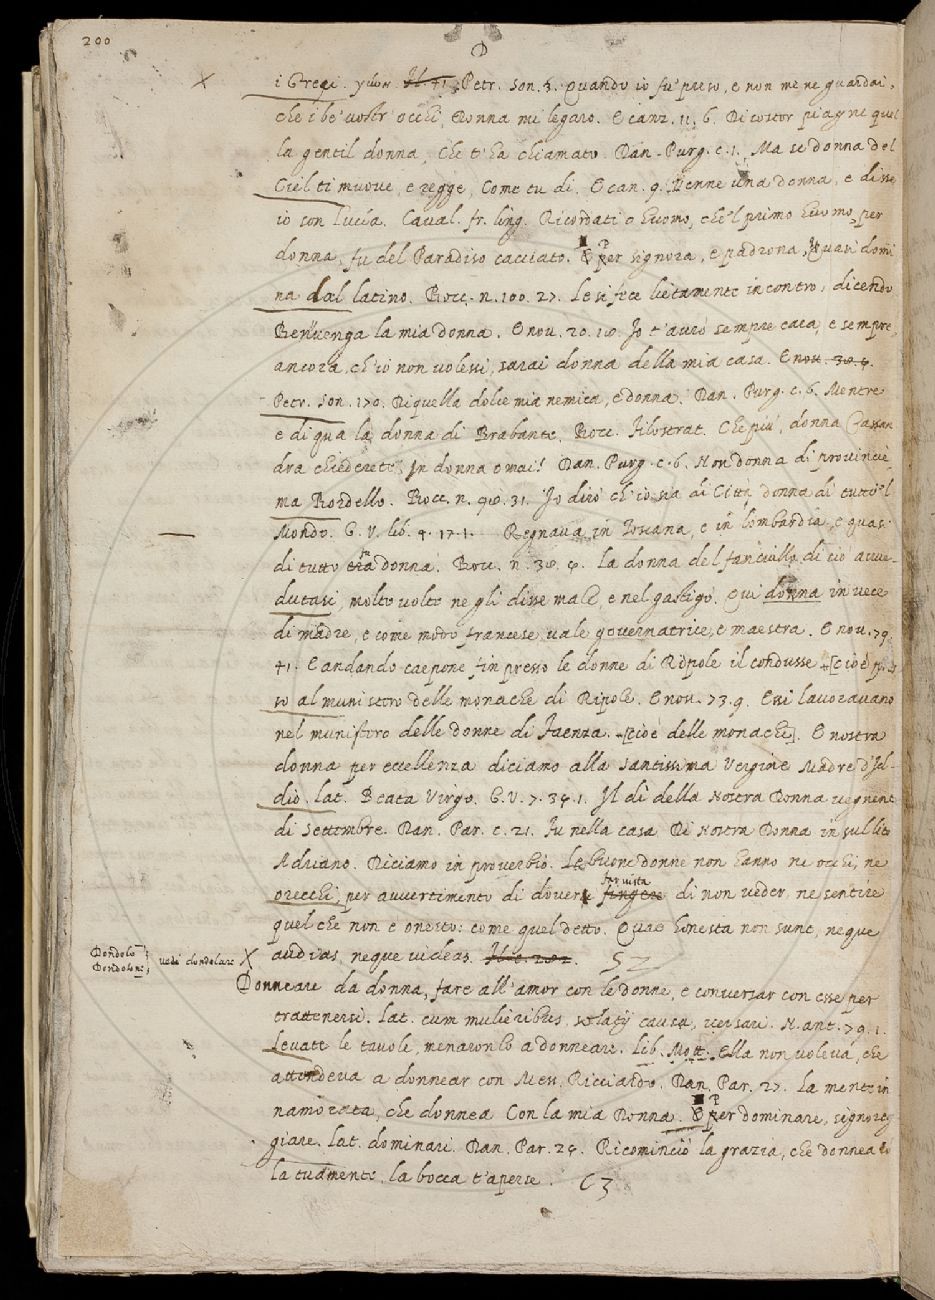 200
D
i Greci. γύνη. Petr. Son. 3. Quando io fu' preso, e non me ne guardai,
che i be' vostr' occhi, Donna mi legaro. E canz. 11. 6. Di costor piagne quel
la gentil donna, Che t'ha chiamato. Dan. Purg. c. 1. Ma se donna del
Ciel ti muove, e regge, Come tu di. E can. 9. Venne una donna, e disse
io son Lucia. Caval. fr. ling. Ricordati o huomo, che 'l primo huomo, per
donna, fu del Paradiso cacciato. P per signora, e padrona, Quasi domi
na dal latino. Bocc. n. 100. 27. Le si fece lietamente incontro, dicendo
Benvenga la mia donna. E nov. 20. 10. Io t'avrò sempre cara, e sempre,
ancora, ch'io non volessi, sarai donna della mia casa. E nov. 30. 4.
Petr. Son. 170. Di quella dolce mia nemica, e donna. Dan. Purg. c. 6. Mentre
e di qua la donna di Brabante, Bocc. Filostrat. Che più, donna Cassan
dra chiederete, In donna omai! Dan. Purg. c. 6. Non donna di provincie,
ma Bordello. Bocc. n. 98. 31. Io dirò ch'io sia di Città donna di tutto 'l
Mondo. G. V. lib. 4. 17. 1. Regnava in Toscana, e in lombardia, e quasi
di tutto fu donna. Bocc. n. 38. 4. La donna del fanciullo di ciò avve-
dutasi, molto volte ne gli disse male, e nel gastigo. Qui donna in vece
di madre, e come modo francese vale governatrice, e maestra. E nov. 79.
41. E andando carpone, fin presso le donne di Ripole il condusse [cioè pres
so al munistero delle monache di Ripole. E nov. 73. 9. Essi lavoravano
nel munistero delle donne di Faenza. [cioè delle monache]. E nostra
donna per eccellenza diciamo alla santissima Vergine Madre d'Id-
dio. lat. Beata Virgo. G. V. 7. 34. 1. Il dì della Nostra Donna vegnente
di Settembre. Dan. Par. c. 21. Fu nella casa Di Nostra Donna in sul lito
Adriano. Diciamo in proverbio. Le buone donne non hanno ne occhi, ne
far vista
orecchi, per avvertimento di dovere fingere di non veder, ne sentire
quel che non è onesto: come quel detto. Quae honesta non sunt, neque
Dondolo
Dondolone
vedi dondolare X
audias, neque videas. 52
Donneare da donna, fare all'amor con le donne, e conversar con esse per
trattenersi. lat. cum mulieribus, solatij causa, versari. N. ant. 79. 1.
Levate le tavole, menaronlo a donneare. Lib. Mott. Ella non voleva, che
attendeva a donnear con Mess. Ricciardo. Dan. Par. 27. La mente in
namorata, che donnea Con la mia Donna. P per dominare, signoreg
giare. lat. dominari. Dan. Par. 24. Ricominciò la grazia, che donnea Co
la tua mente, la bocca t'aperse. C3